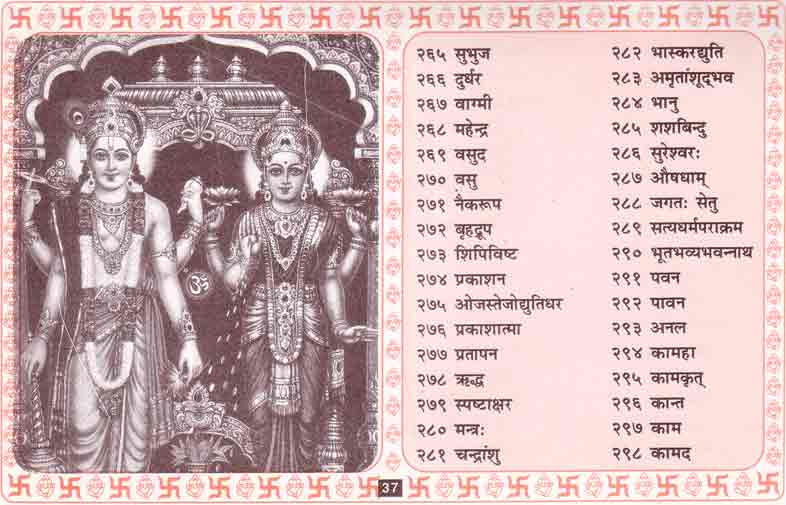 २६५ सुभुज
२६६ दुर्धर
२६७ वाग्मी
२६८ महेन्द्र
२६९ वसुद
२७० वसु
२७१ नैकरूप
२७२ बृहद्रूप
२७३ शिपिविष्ट
२७४ प्रकाशन
२७५ ओजस्तेजोद्युतिधर
२७६ प्रकाशात्मा
२७७ प्रतापन
२७८ ऋद्ध
२७९ स्पष्टाक्षर
२८० मन्त्रः
२८१ चन्द्रांशु
२८२ भास्करद्युति
२८३ अमृतांशूद्भव
२८४ भानु
२८५ शशबिन्दु
२८६ सुरेश्वरः
२८७ औषधाम्
२८८ जगतः सेतु
२८९ सत्यधर्मपराक्रम
२९० भूतभव्यभवन्नाथ
२९१ पवन
२९२ पावन
२९३ अनल
२९४ कामहा
२९५ कामकृत्
२९६ कान्त
२९७ काम
२९८ कामद
ॐ
37